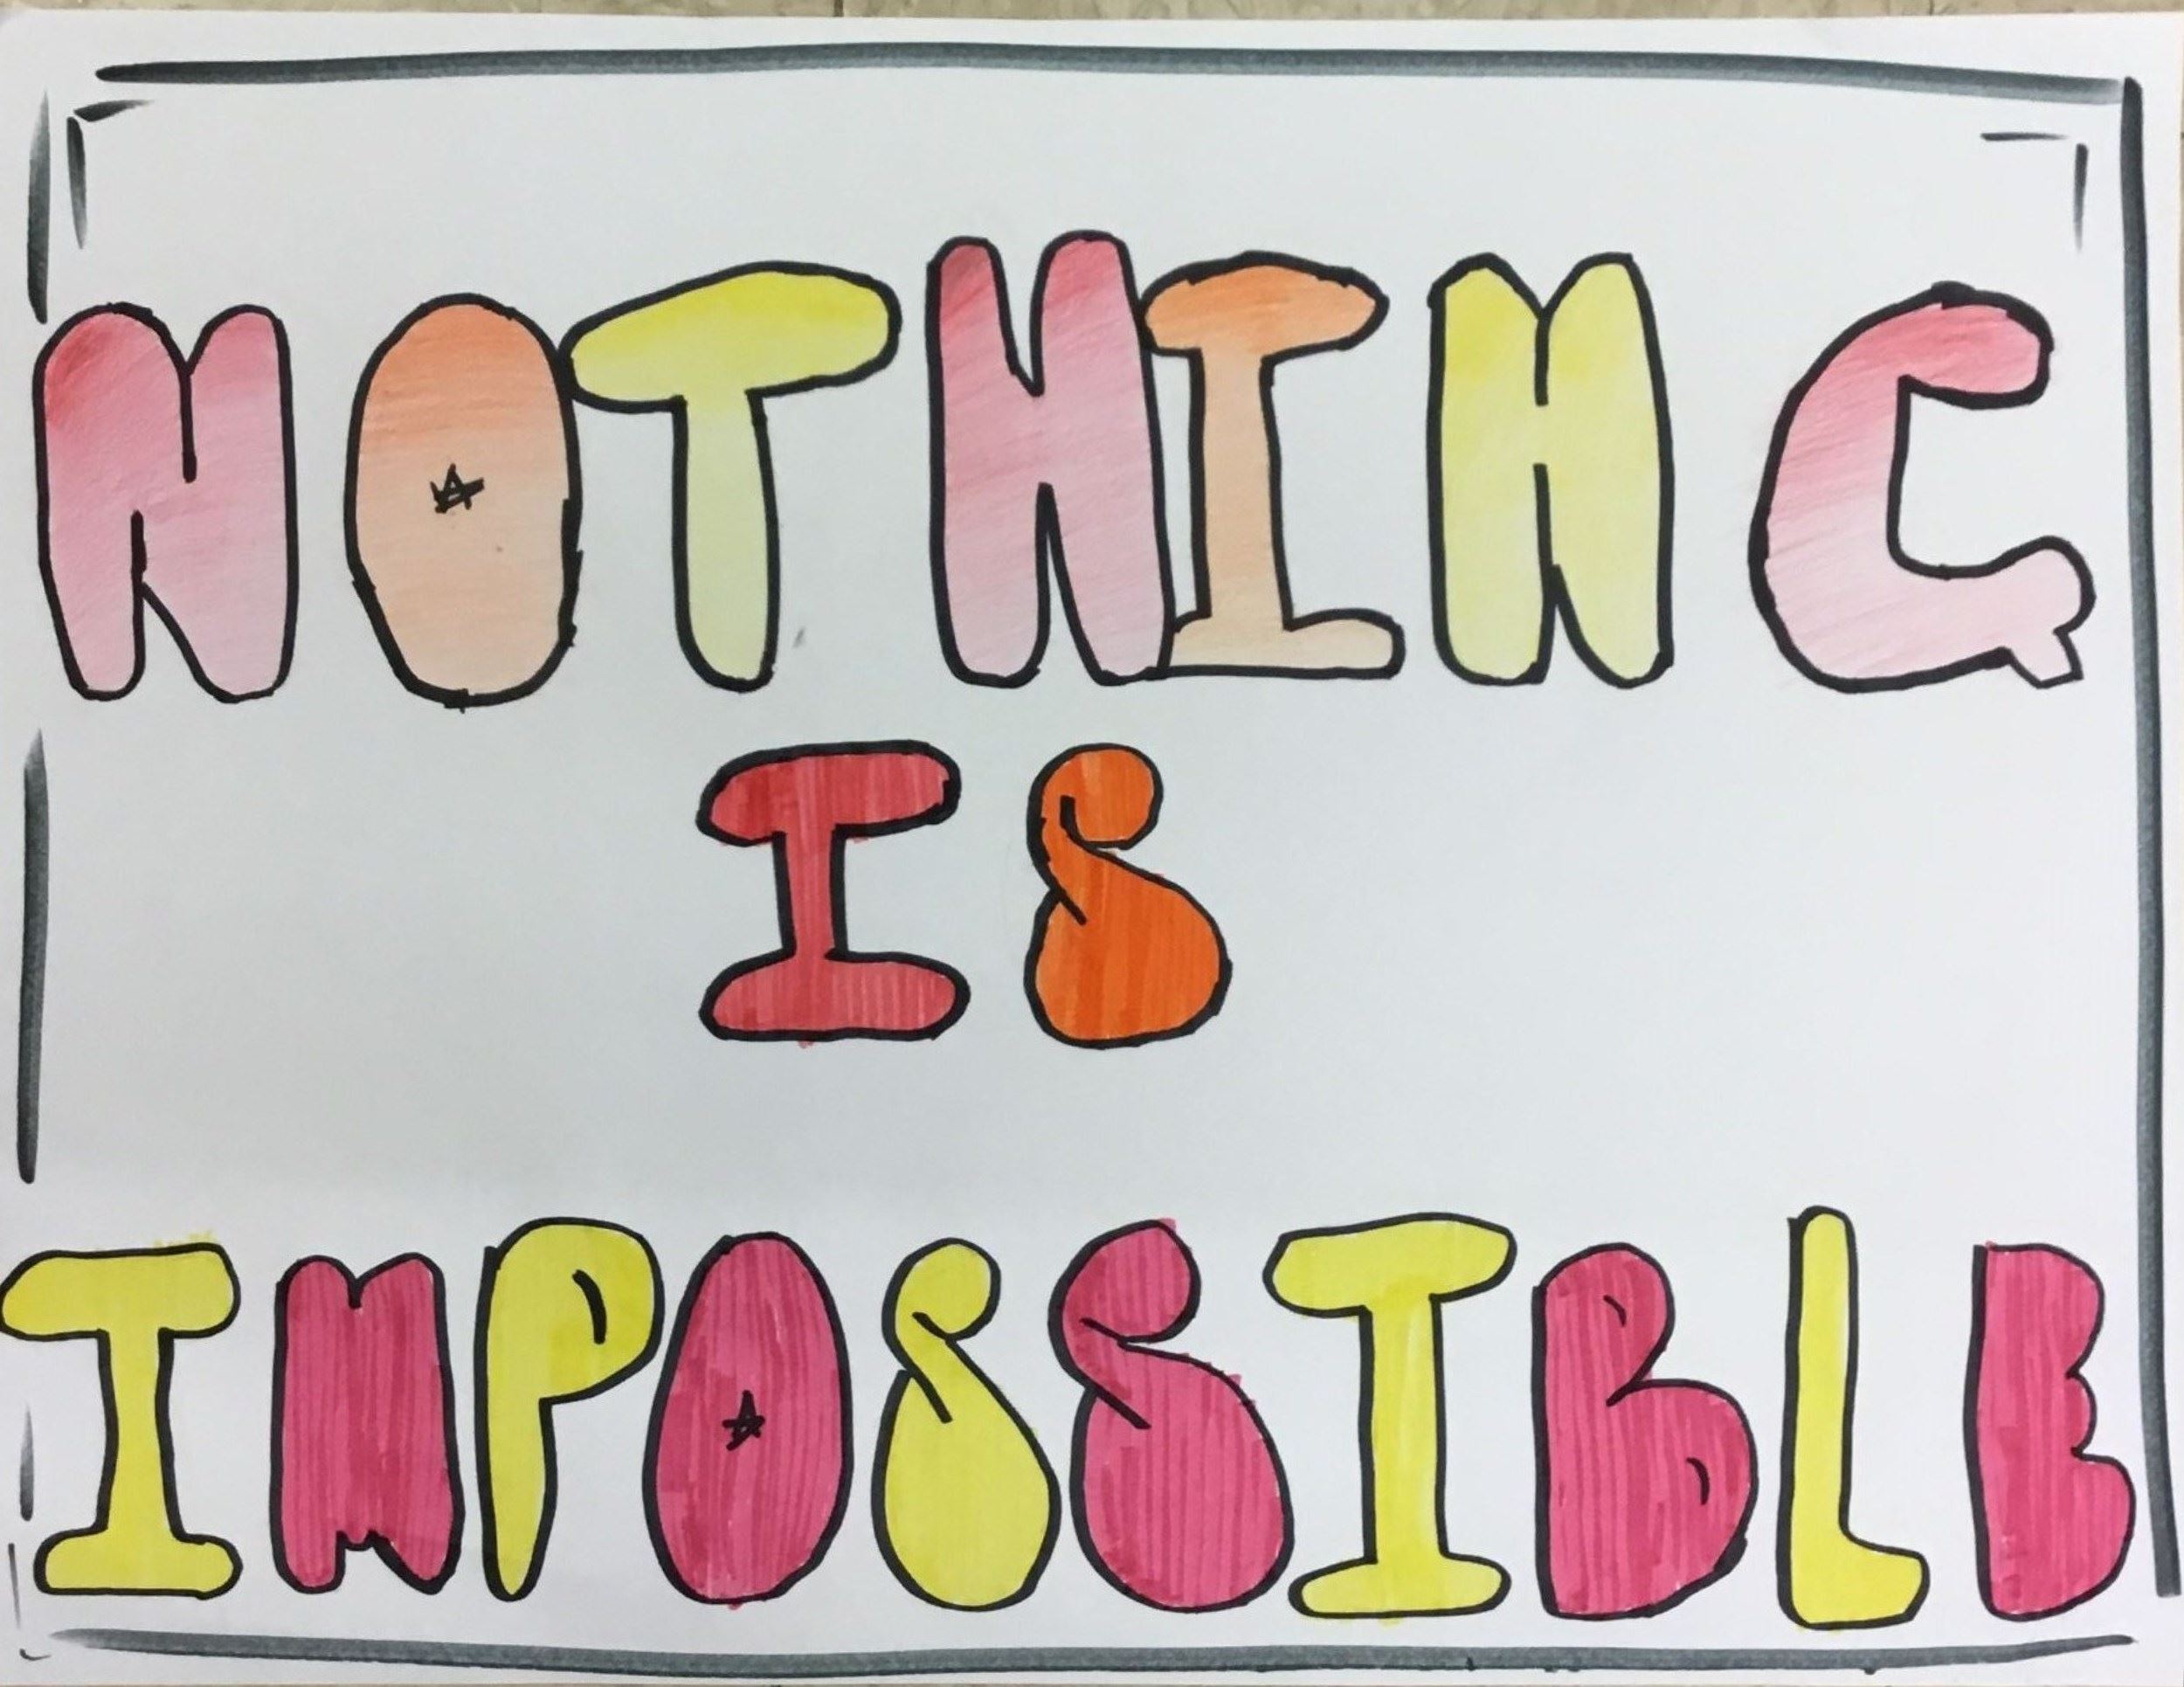 NOTHING
IS
IMPOSSIBLE